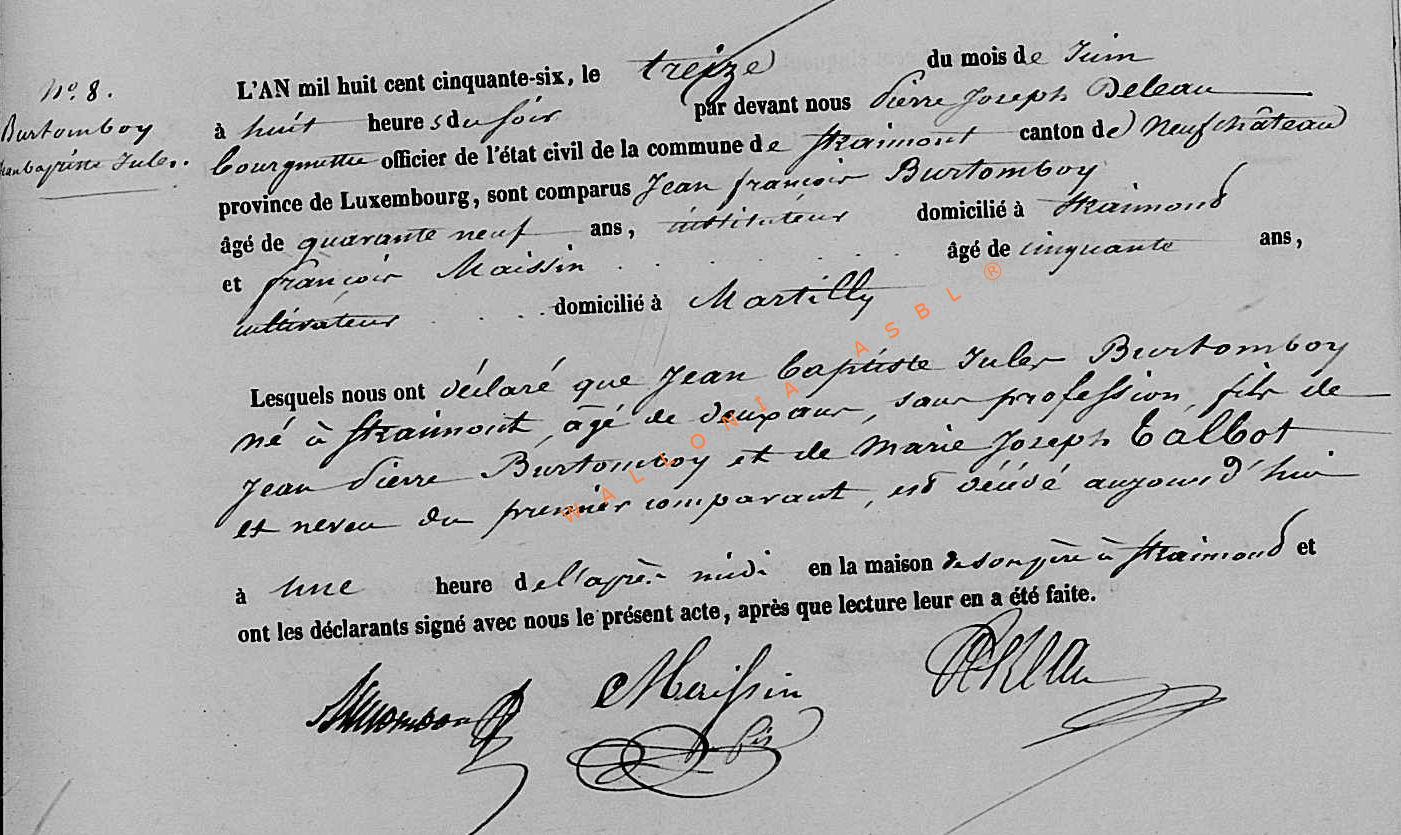 No. 8.
Burtomboy
Jean Baptiste Jules.
L'AN mil huit cent cinquante-six, le treize du mois de Juin
à huit heures du soir par devant nous Pierre Joseph Deleau
bourgmettre officier de l'état civil de la commune de Straimont canton de Neufchâteau
province de Luxembourg, sont comparus Jean françois Burtomboy
âgé de quarante neuf ans, instituteur domicilié à Straimond
et françois Maissin . . . . . . . . âgé de cinquante ans,
cultivateur . . . . . domicilié à Martilly
Lesquels nous ont déclaré que Jean baptiste Jules Burtomboy
né à Straimont, âgé de deux ans, sans profession, fils de
Jean Pierre Burtomboy et de Marie Joseph Talbot
et neveu du premier comparant, est décédé aujourd'hui
à une heure de l'après-midi en la maison de son père à Straimond et
ont les déclarants signé avec nous le présent acte, après que lecture leur en a été faite.
Burtomboy Maissin Deleau
WALLONIA ASBL ®